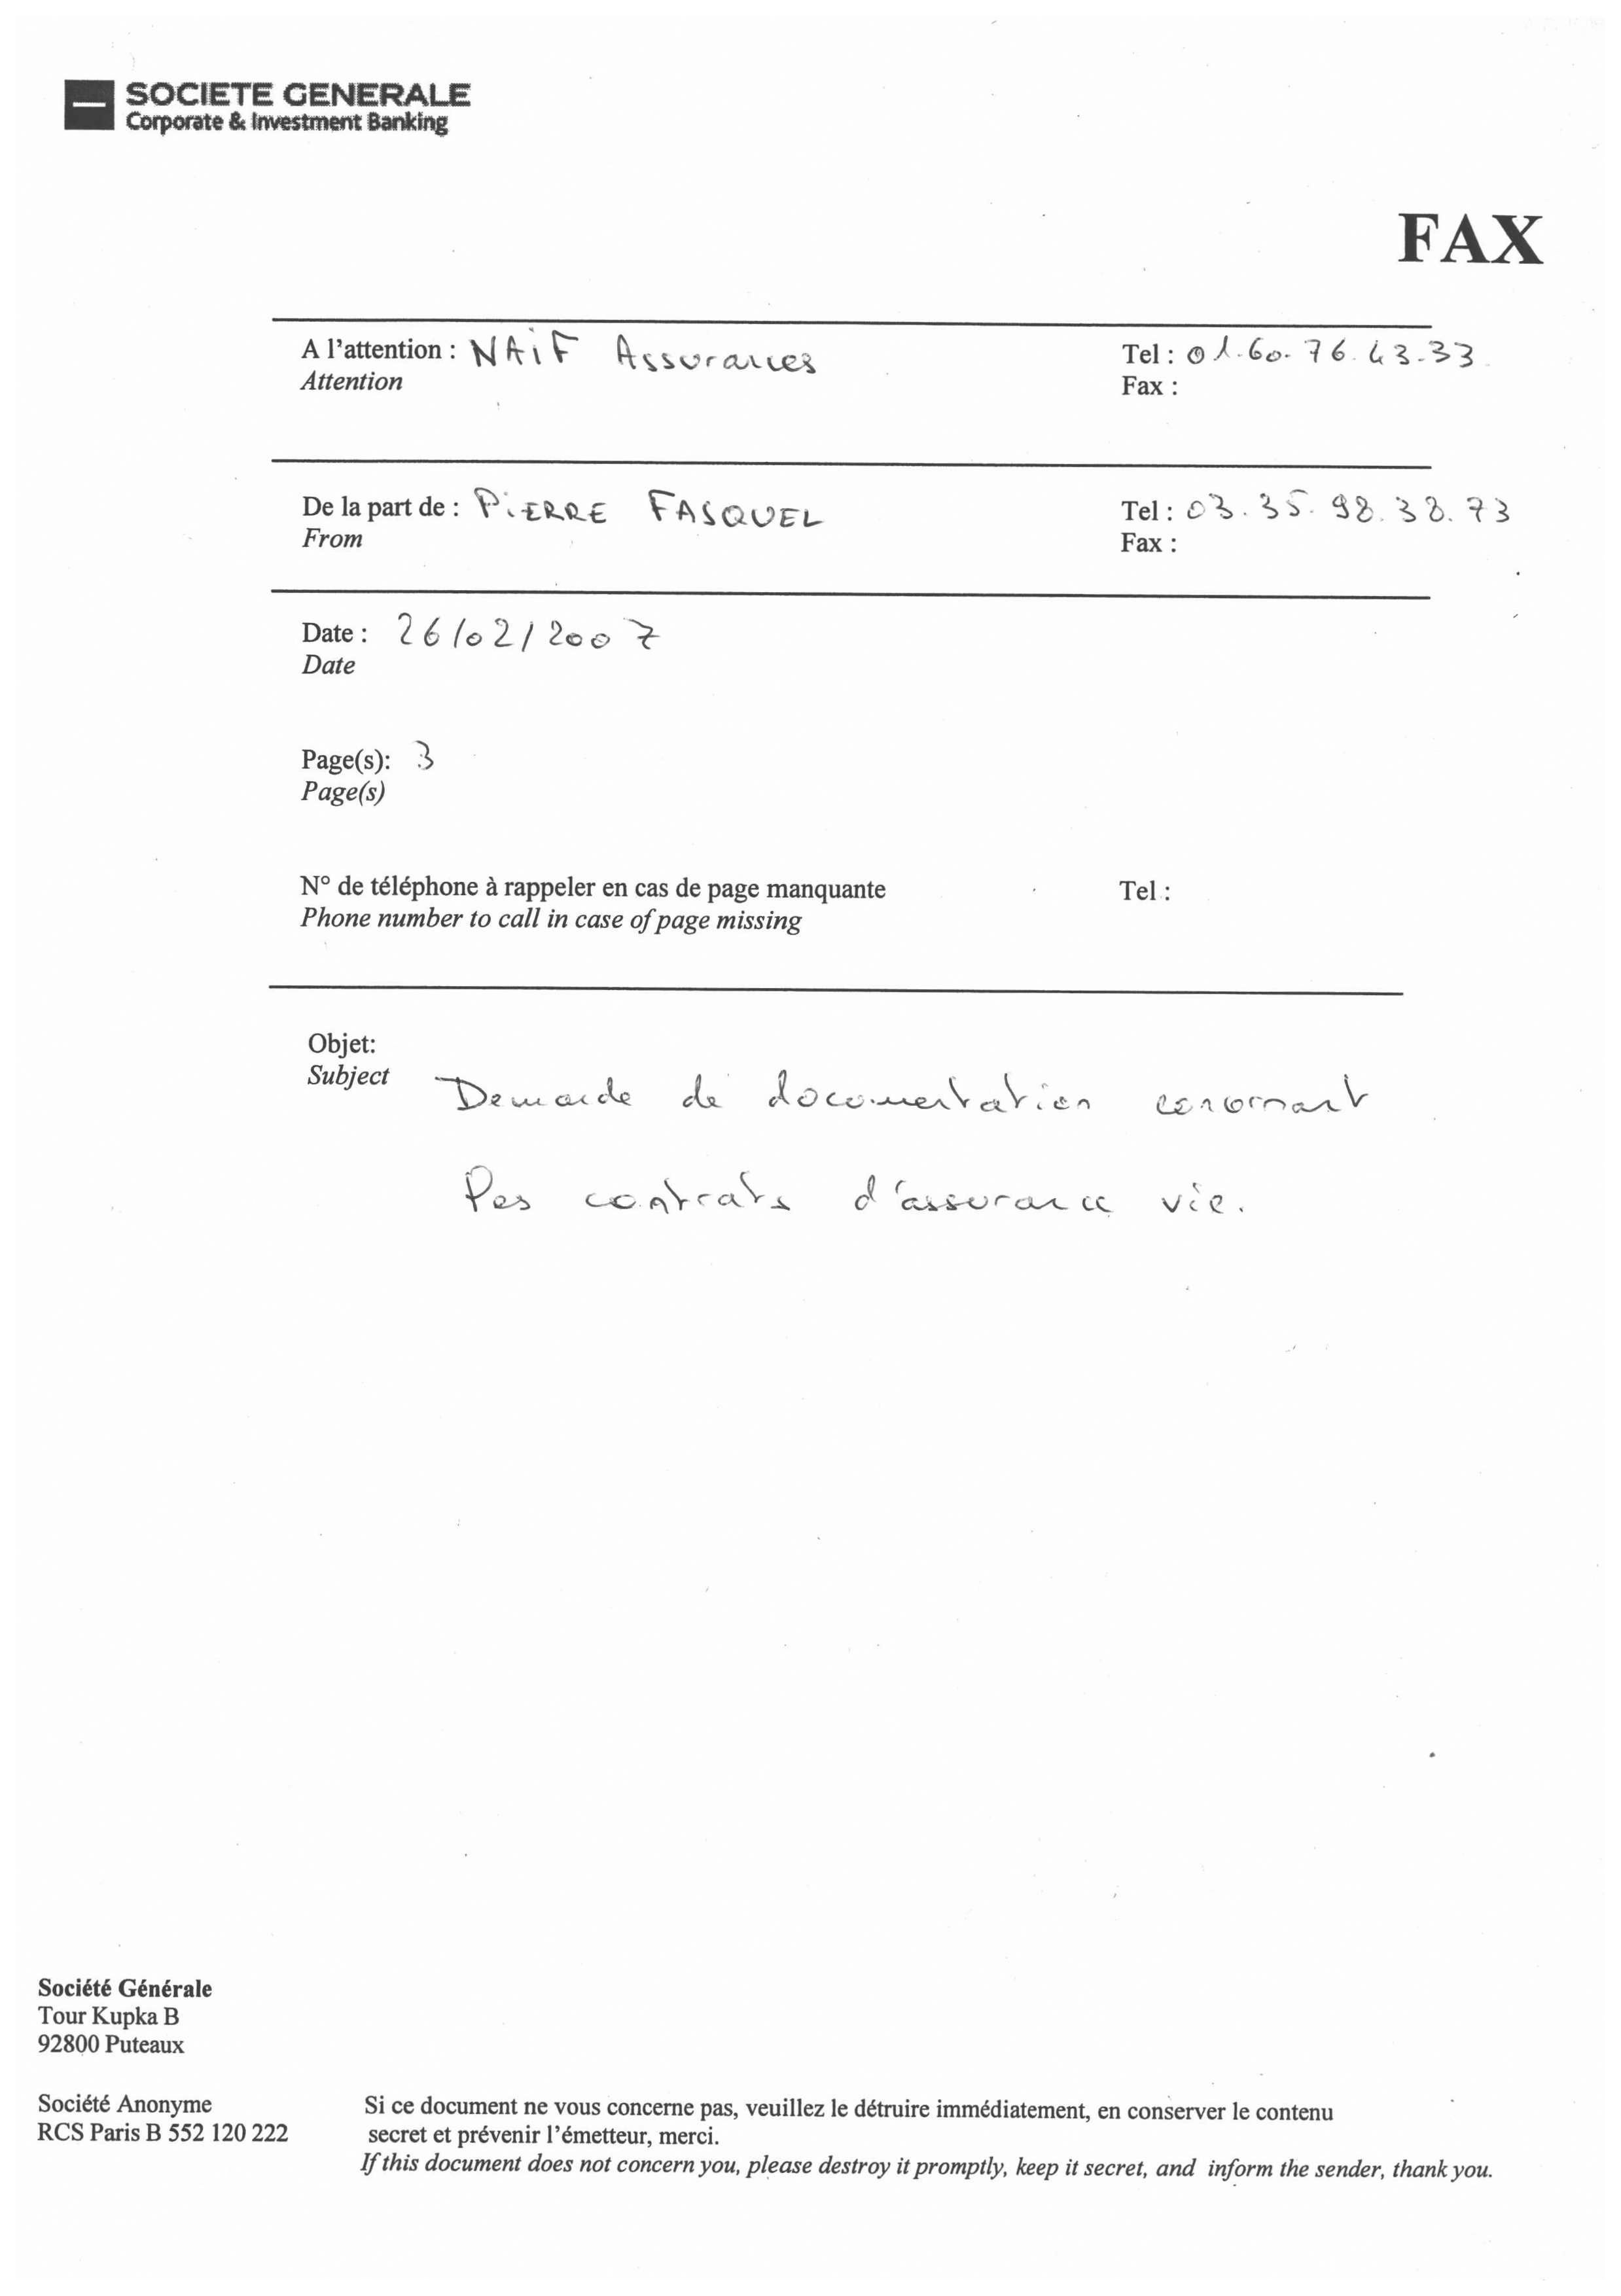 SOCIETE GENERALE
Corporate & Investment Banking
FAX
A l'attention : NAiF Assurances Tel : 01.60.76.43.33
Attention Fax :
De la part de : PiERRE FASQUEL Tel : 03.35.98.38.73
From Fax :
Date : 26/02/2007
Date
Page(s): 3
Page(s)
N° de téléphone à rappeler en cas de page manquante Tel :
Phone number to call in case of page missing
Objet:
Subject
Demande de documentation concernant
les contrats d'assurance vie.
Société Générale
Tour Kupka B
92800 Puteaux
Société Anonyme
RCS Paris B 552 120 222
Si ce document ne vous concerne pas, veuillez le détruire immédiatement, en conserver le contenu
secret et prévenir l'émetteur, merci.
If this document does not concern you, please destroy it promptly, keep it secret, and inform the sender, thank you.